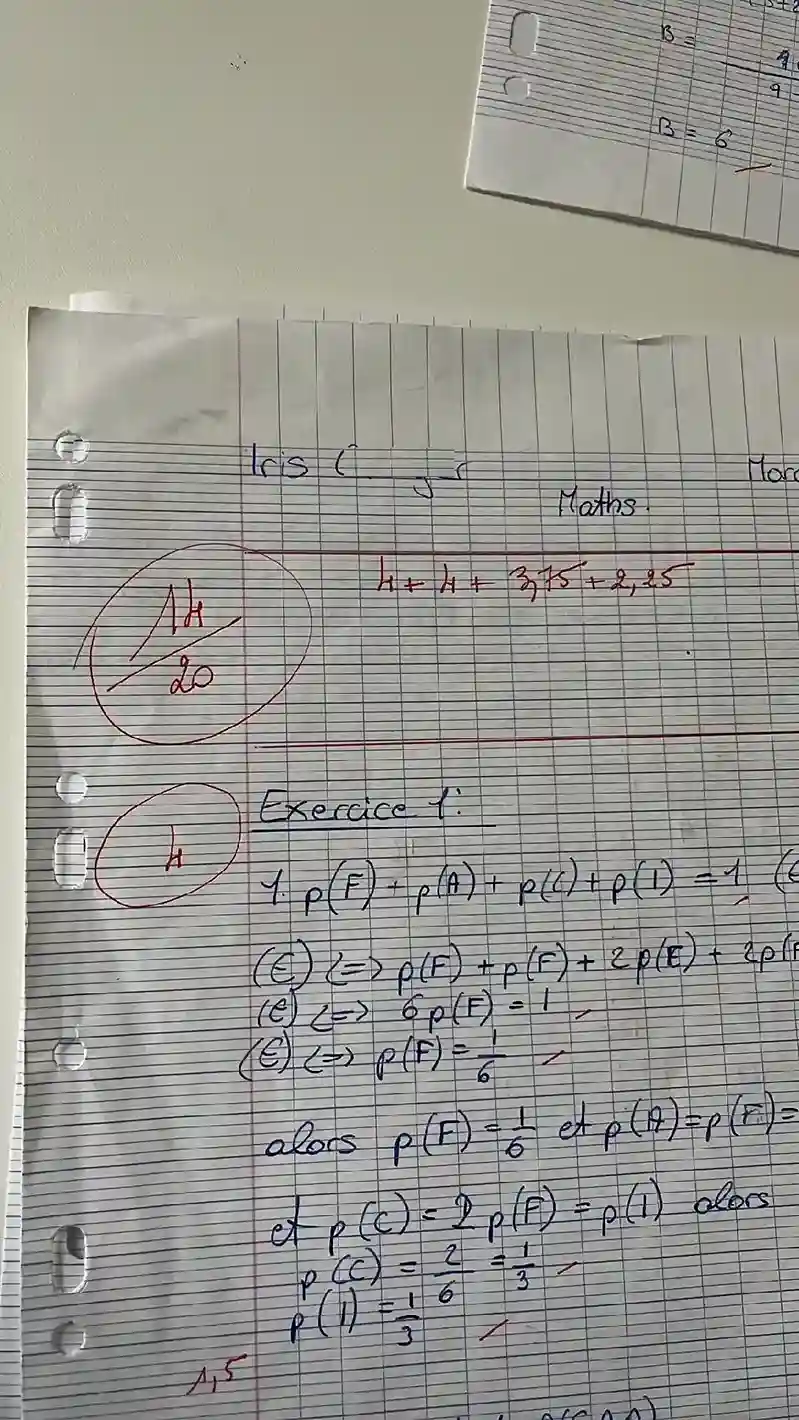 B =
9
B = 6
Iris
Maths.
14
20
4 + 4 + 3,75 + 2,25
Exercice 1:
4
1. p(F) + p(A) + p(C) + p(I) = 1
(E) <=> p(F) + p(F) + 2p(E) + 2p(F
(E) <=> 6p(F) = 1
(E) <=> p(F) = 1/6
alors p(F) = 1/6 et p(A) = p(F) =
et p(C) = 2p(F) = p(I) alors
p(C) = 2/6 = 1/3
p(I) = 1/3
1,5